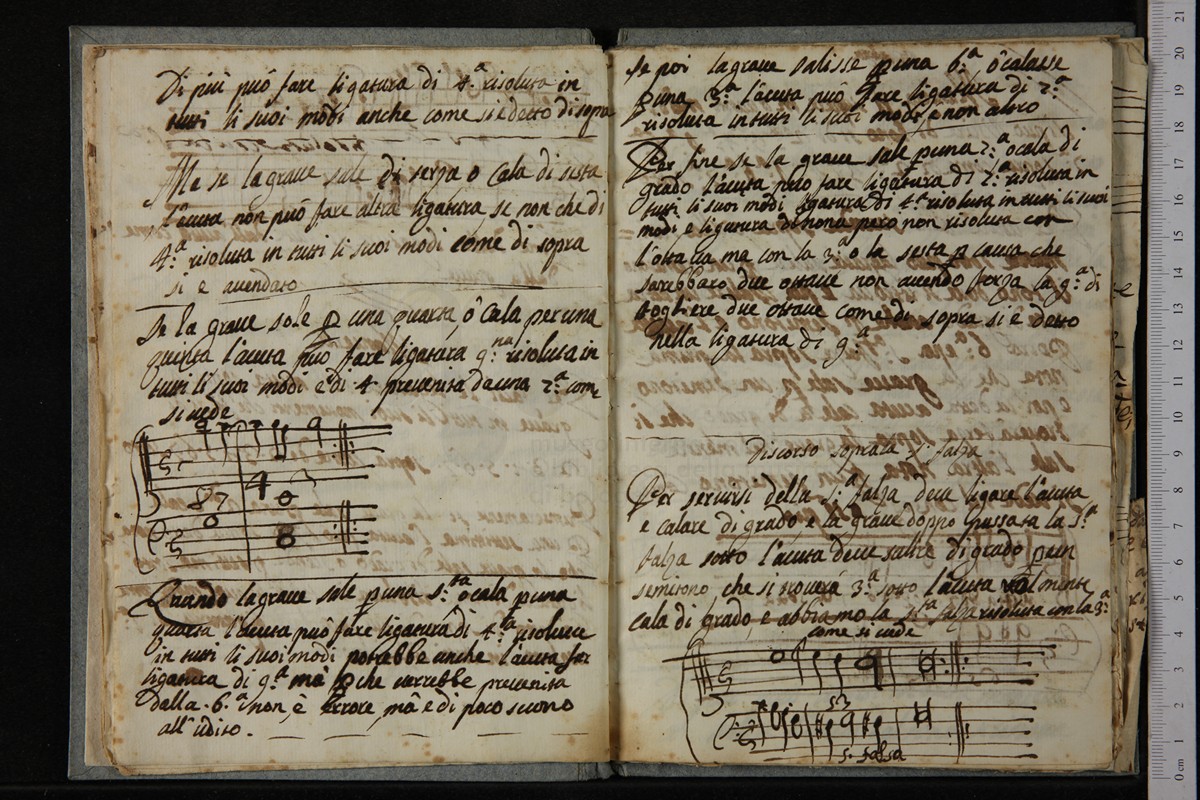 Di più può fare ligatura di 4.ª risoluta in
tutti li suoi modi anche come si è detto di sopra
Ma se la grave sale di terza o cala di sesta
l'acuta non può fare altra ligatura se non che di
4.ª risoluta in tutti li suoi modi come di sopra
si è
Se la grave sale p una quarta, ò cala per una
quinta l'acuta può fare ligatura 9.na risoluta in
tutti li suoi modi e di 4 prevenita da una 2.ª com
si vede
87
4 3
8
Quando la grave sale p una 5.ta ò cala p una
quarta l'acuta può fare ligatura di 4.ta risoluta
in tutti li suoi modi potrebbe anche l'acuta far
ligatura di 9.ª mà p che verrebbe prevenita
dalla 6.ª non, è Errore, mà è di poco suono
all'udito.
Se poi la grave salisse p una 6.ª ò calasse
p una 3.ª l'acuta può fare ligatura di 2.ª
risoluta in tutti li suoi modi e non altro
Per fine se la grave sale p una 7.ª ò cala di
grado l'acuta può fare ligatura di 2.ª risoluta in
tutti li suoi modi ligatura di 4.ª risoluta in tutti li suoi
modi e ligatura di nona però non risoluta con
l'ottava ma con la 3.ª o la sesta p causa che
sarebbaro due ottave non avendo forza la 9.ª di
togliere due ottave come di sopra si è detto
nella ligatura di 9.ª
Discorso sopra la 5.ª falza
Per servirsi della 5.ª falza deve ligare l'acuta
e calare di grado, e la grave doppo la 5.ª
falza sotto l'acuta deve salire di grado p un
semitono, che si troverà 3.ª sotto l'acuta
cala di grado, e abbiamo la 5.ta falza risoluta con la 3.ª
come si vede
5 3
5. falsa